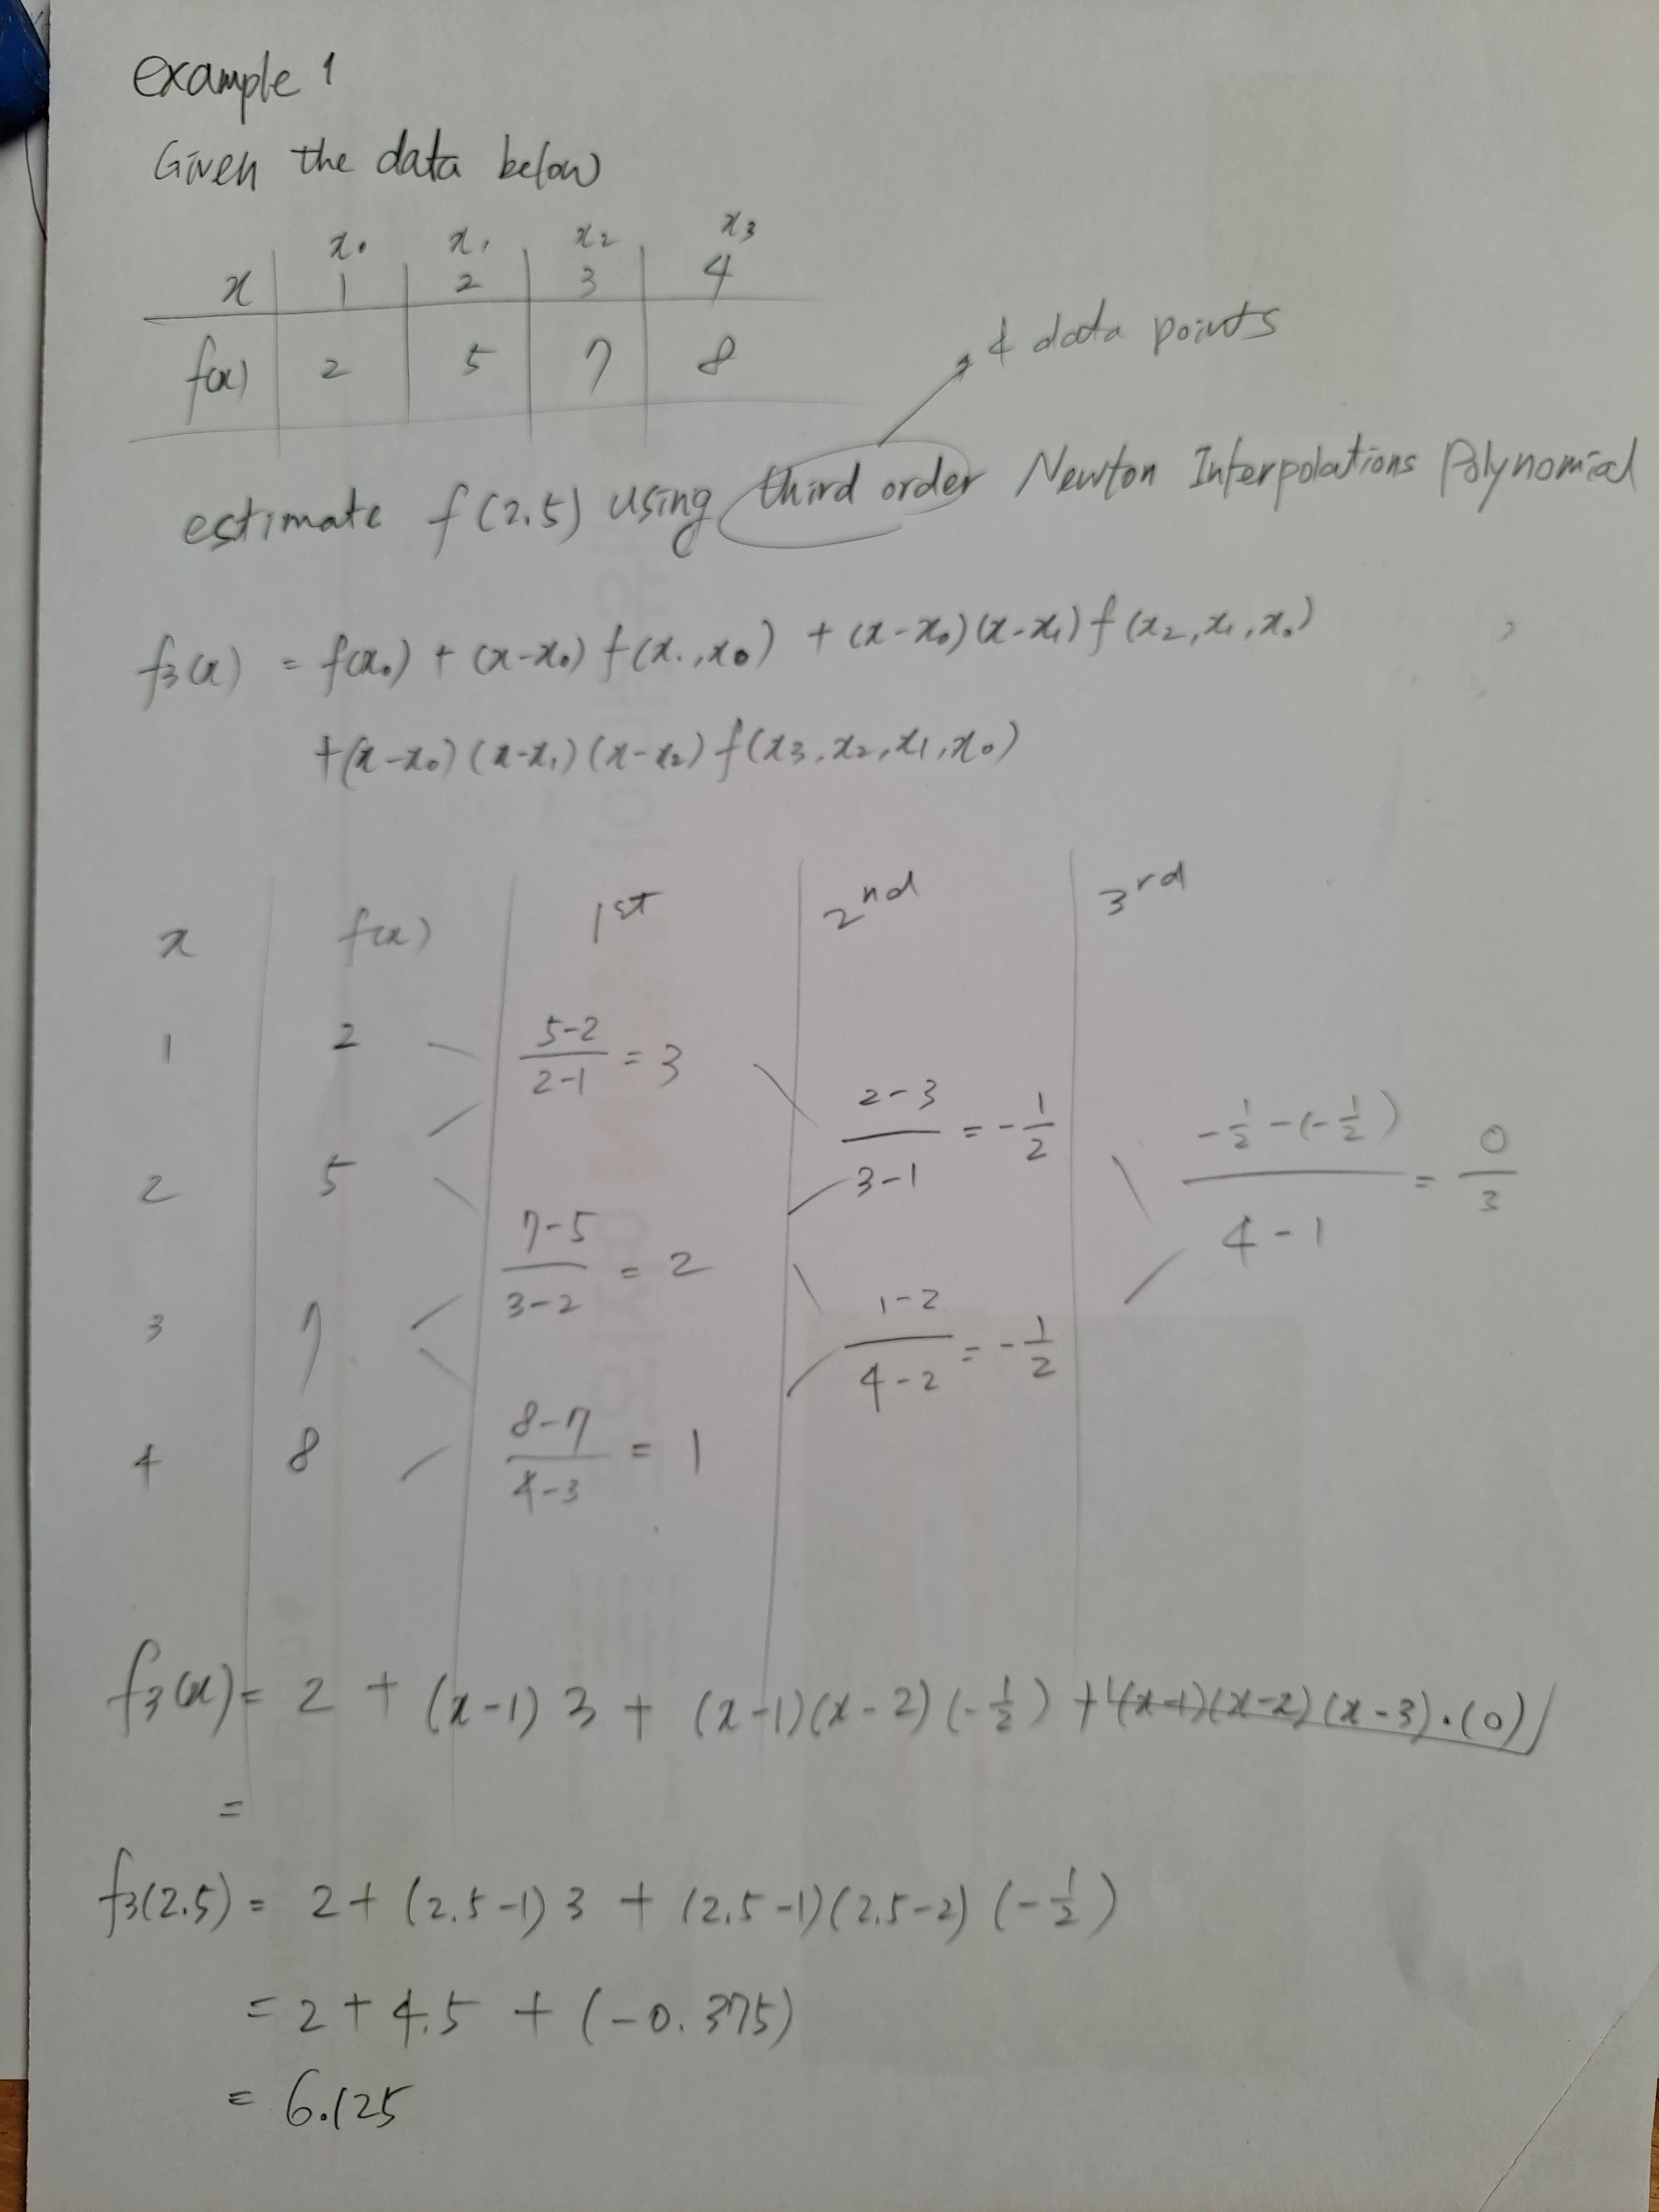 example 1
Given the data below
x₀ x₁ x₂ x₃
x 1 2 3 4
f(x) 2 5 7 8
4 data points
estimate f(2.5) using third order Newton Interpolations Polynomial
f₃(x) = f(x₀) + (x-x₀) f(x₁,x₀) + (x-x₀)(x-x₁) f(x₂,x₁,x₀)
+(x-x₀)(x-x₁)(x-x₂) f(x₃,x₂,x₁,x₀)
x f(x) 1st 2nd 3rd
1 2 (5-2)/(2-1) = 3
(2-3)/(3-1) = -1/2
(-1/2-(-1/2))/(4-1) = 0/3
2 5
(7-5)/(3-2) = 2
3 7
(1-2)/(4-2) = -1/2
4 8 (8-7)/(4-3) = 1
f₃(x) = 2 + (x-1) 3 + (x-1)(x-2)(-1/2) + (x-1)(x-2)(x-3)·(0)
=
f₃(2.5) = 2 + (2.5-1) 3 + (2.5-1)(2.5-2)(-1/2)
= 2 + 4.5 + (-0.375)
= 6.125